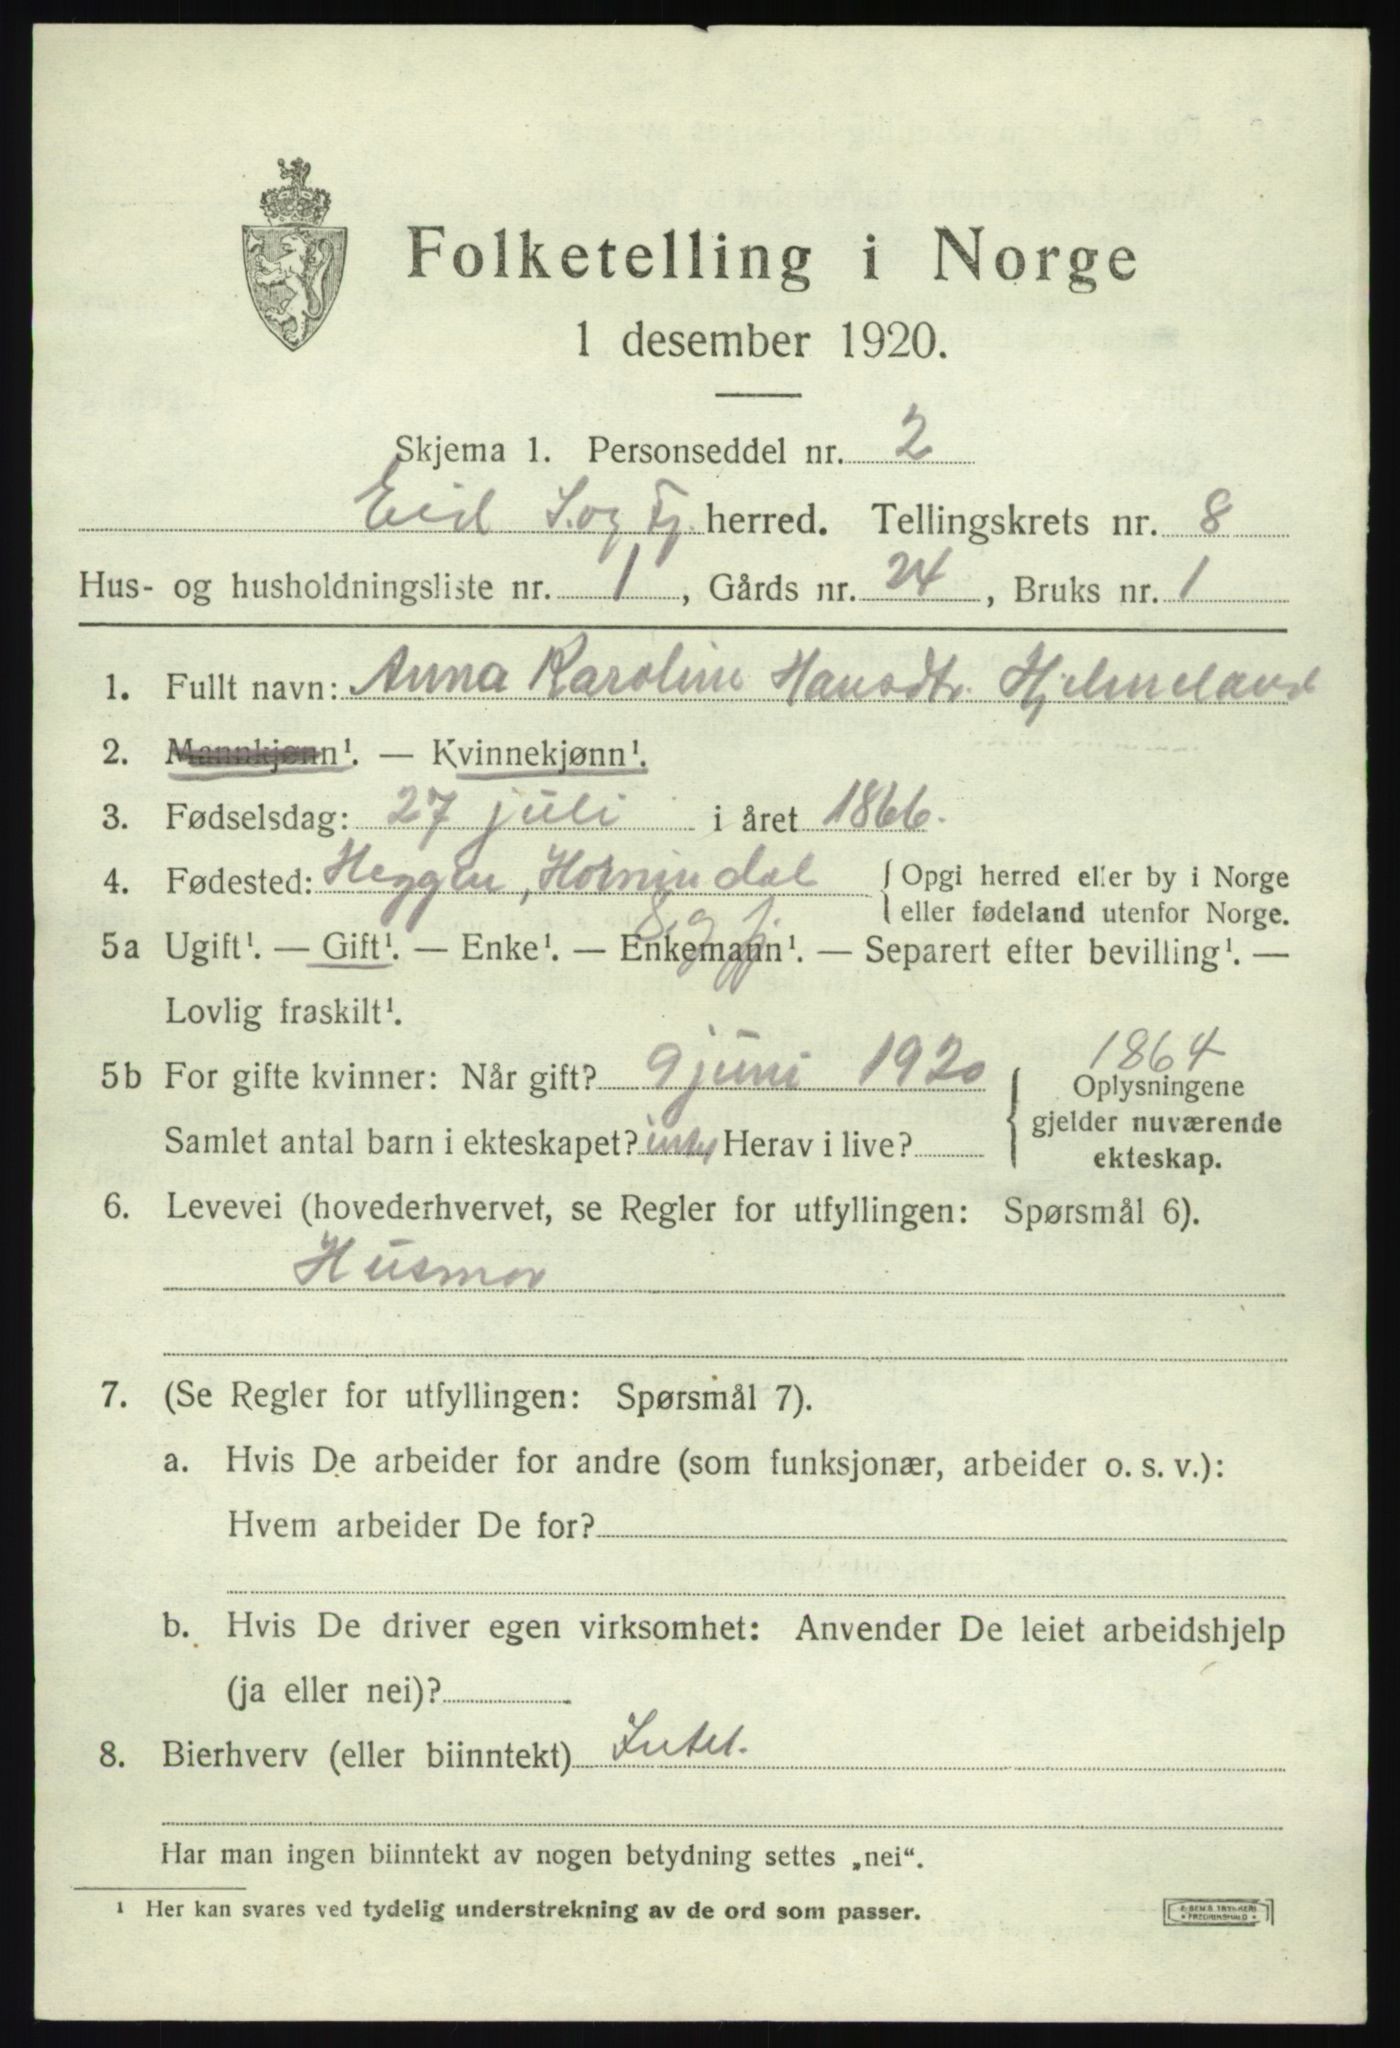 Folketelling i Norge
1 desember 1920.
Skjema 1. Personseddel nr. 2
Eid S. og Fj. herred. Tellingskrets nr. 8
Hus- og husholdningsliste nr. 1, Gårds nr. 24, Bruks nr. 1
1. Fullt navn: Anna Karoline Hansdtr. Hjelmeland
2. Mannkjønn¹. — Kvinnekjønn¹.
3. Fødselsdag: 27 juli i året 1866.
4. Fødested: Heggen, Hornindal { Opgi herred eller by i Norge
eller fødeland utenfor Norge.
S g fj.
5a Ugift¹. — Gift¹. — Enke¹. — Enkemann¹. — Separert efter bevilling¹. —
Lovlig fraskilt¹.
1864
5b For gifte kvinner: Når gift? 9 juni 1920 { Oplysningene
gjelder nuværende
Samlet antal barn i ekteskapet? intet Herav i live?
ekteskap.
6. Levevei (hovederhvervet, se Regler for utfyllingen: Spørsmål 6).
Husmor
7. (Se Regler for utfyllingen: Spørsmål 7).
a. Hvis De arbeider for andre (som funksjonær, arbeider o. s. v.):
Hvem arbeider De for?
b. Hvis De driver egen virksomhet: Anvender De leiet arbeidshjelp
(ja eller nei)?
8. Bierhverv (eller biinntekt) Intet.
Har man ingen biinntekt av nogen betydning settes „nei“.
¹ Her kan svares ved tydelig understrekning av de ord som passer.